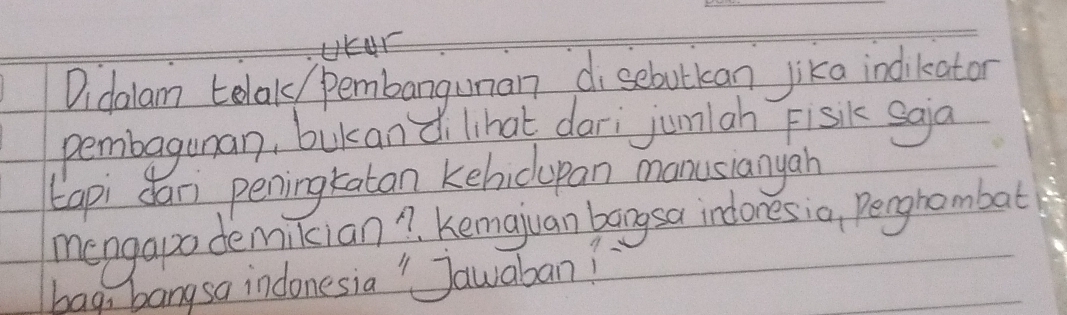 ukur
Didalam tolak/pembangunan disebutkan jika indikator
pembagunan, bukan dilihat dari jumlah Fisik saja
tapi dari peningkatan kehidupan manusianyah
mengapa demikian? kemajuan bangsa indonesia, penghambat
bagi bangsa indonesia" Jawaban!